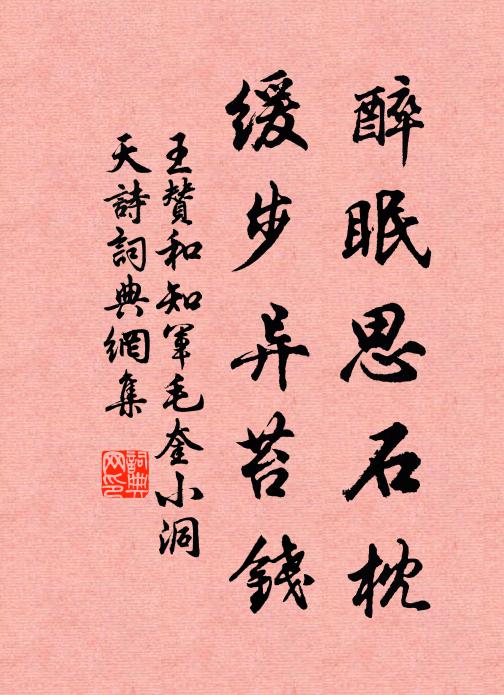 醉眠思石枕
缓步异苔錢
王贊和知軍毛奎小洞
天詩詞典網集
詞典
网印